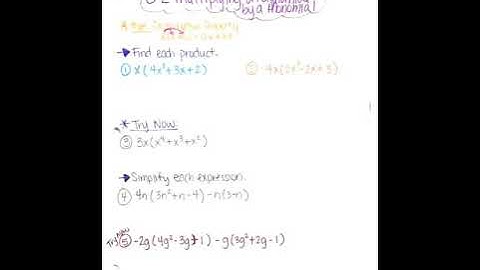 Multiplying a Polynomial
by a Monomial
Distributive Property
→ Find each product.
① x(4x²+3x+2) ② -4x(2x²-2x+3)
* Try Now
③ 3x(x⁴+x³+x²)
→ Simplify each expression.
④ 4n(3n²+n-4)-n(3-n)
Try Now ⑤ -2g(4g²-3g+1) - g(3g²+2g-1)